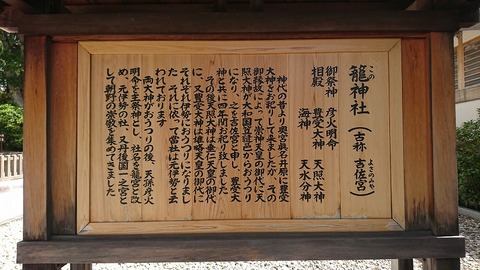 籠神社（古称 吉佐宮）
この
よさのみや
御祭神 彦火明命
相殿 豊受大神 天照大神
海神 天水分神
神代の昔より奥宮眞名井原に豊受
大神をお祀りして来ましたが、その
御縁故によって崇神天皇の御代に天
照大神が大和国笠縫邑からおうつり
になり、之を吉佐宮と申し、豊受大
神と共に四年間お祀り致しました
その後天照大神は垂仁天皇の御代
に、又豊受大神は雄略天皇の御代に
それぞれ伊勢におうつりになりまし
た それに依って当社は元伊勢と云
われております
両大神がおうつりの後、天孫彦火
明命を主祭神とし、社名を籠宮と改
め、元伊勢の社、又丹後国一之宮と
して朝野の崇敬を集めてきました